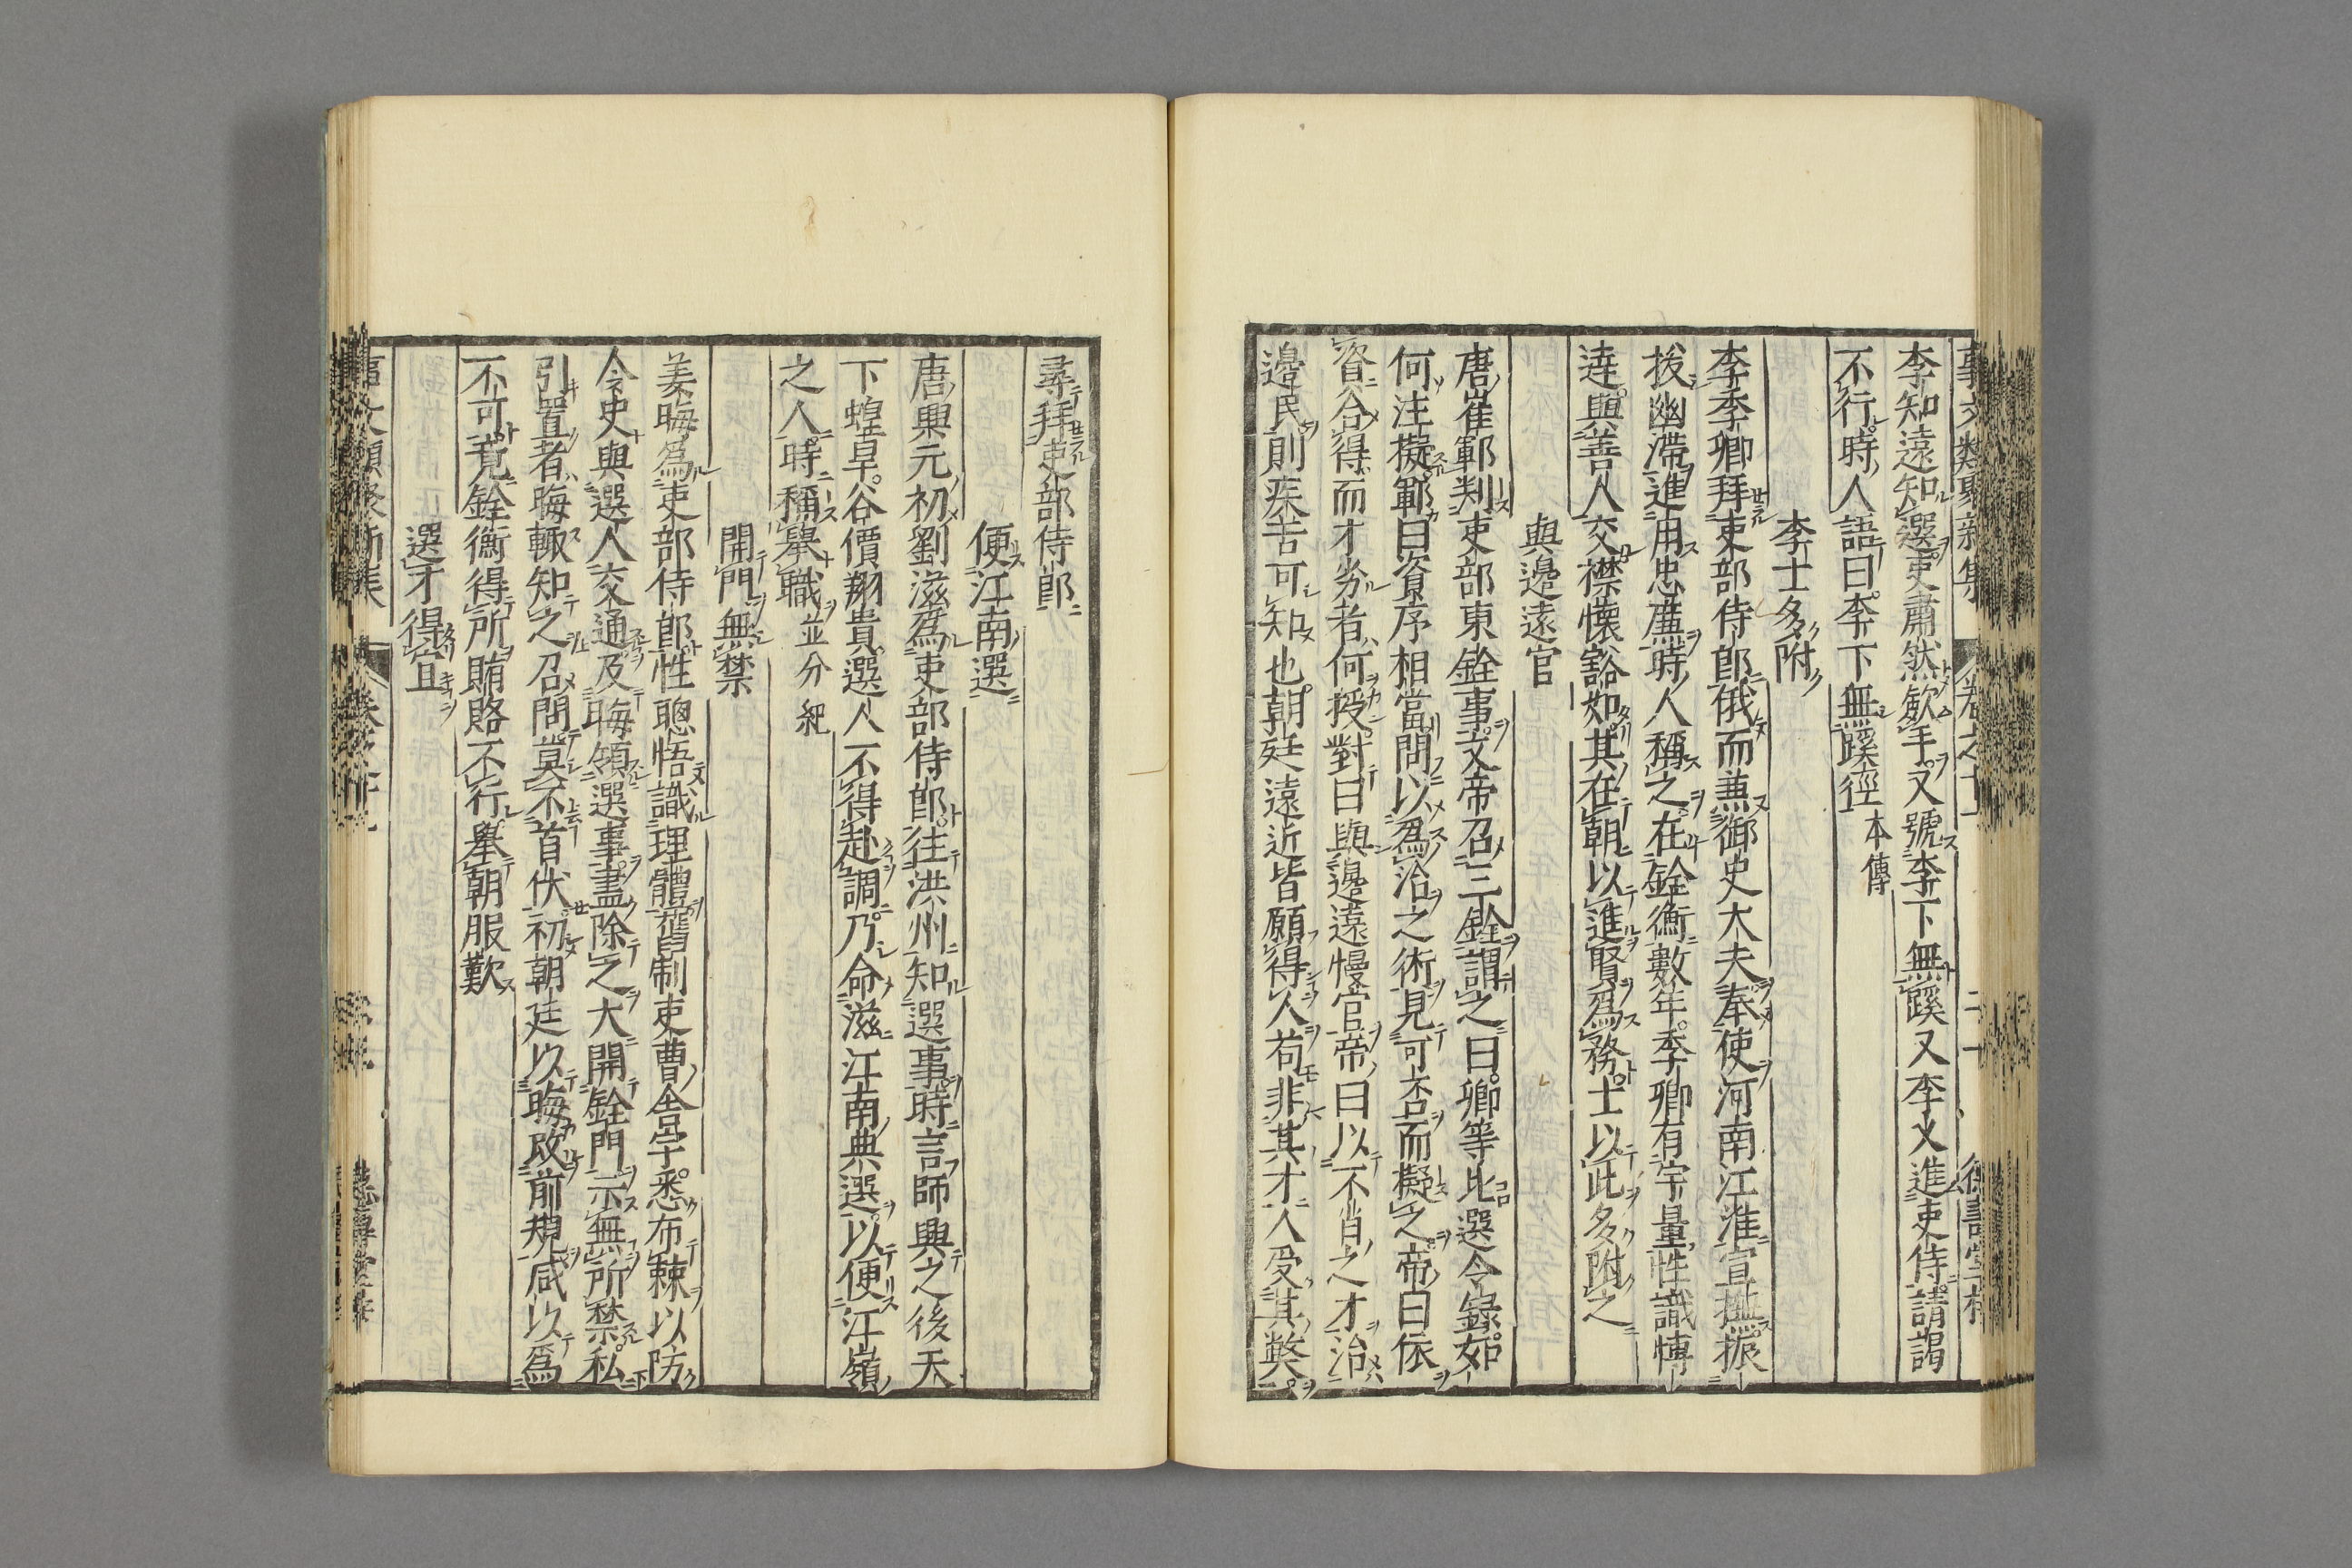 李知遠知選吏肅然歛手又號李下無蹊又李乂進吏侍請謁
不行時人語曰李下無蹊徑本傳
李士多附
李季卿拜吏部侍郎俄而兼御史大夫奉使河南江淮宣撫振
拔幽滯進用忠廉時人稱之在銓衡數年季卿有宇量性識愽
達與善人交襟懷豁如其在朝以進賢爲務士以此多附之
與邊遠官
唐崔鄆判吏部東銓事文帝召三銓謂之曰卿等比選令錄如
何注擬鄆曰資序相當問以爲治之術見可否而擬之帝曰依
資合得而才劣者何授對曰與邊遠慢官帝曰以不肖之才治
邊民則疾苦可知也朝廷遠近皆願得人苟非其才人受其弊
尋拜吏部侍郎
便江南選
唐興元初劉滋爲吏部侍郎往洪州知選事時言師興之後天
下蝗旱谷價翔貴選人不得赴調乃命滋江南典選以便江嶺
之人時稱舉職並分紀
開門無禁
姜晦爲吏部侍郎性聰悟識理體舊制吏曹舎宇悉布棘以防
令史與選人交通及晦領選事盡除之大開銓門示無所禁私
引置者晦輙知之召問莫不首伏初朝廷以晦改前規咸以爲
不可竟銓衡得所賄賂不行舉朝服歎
選才得宜